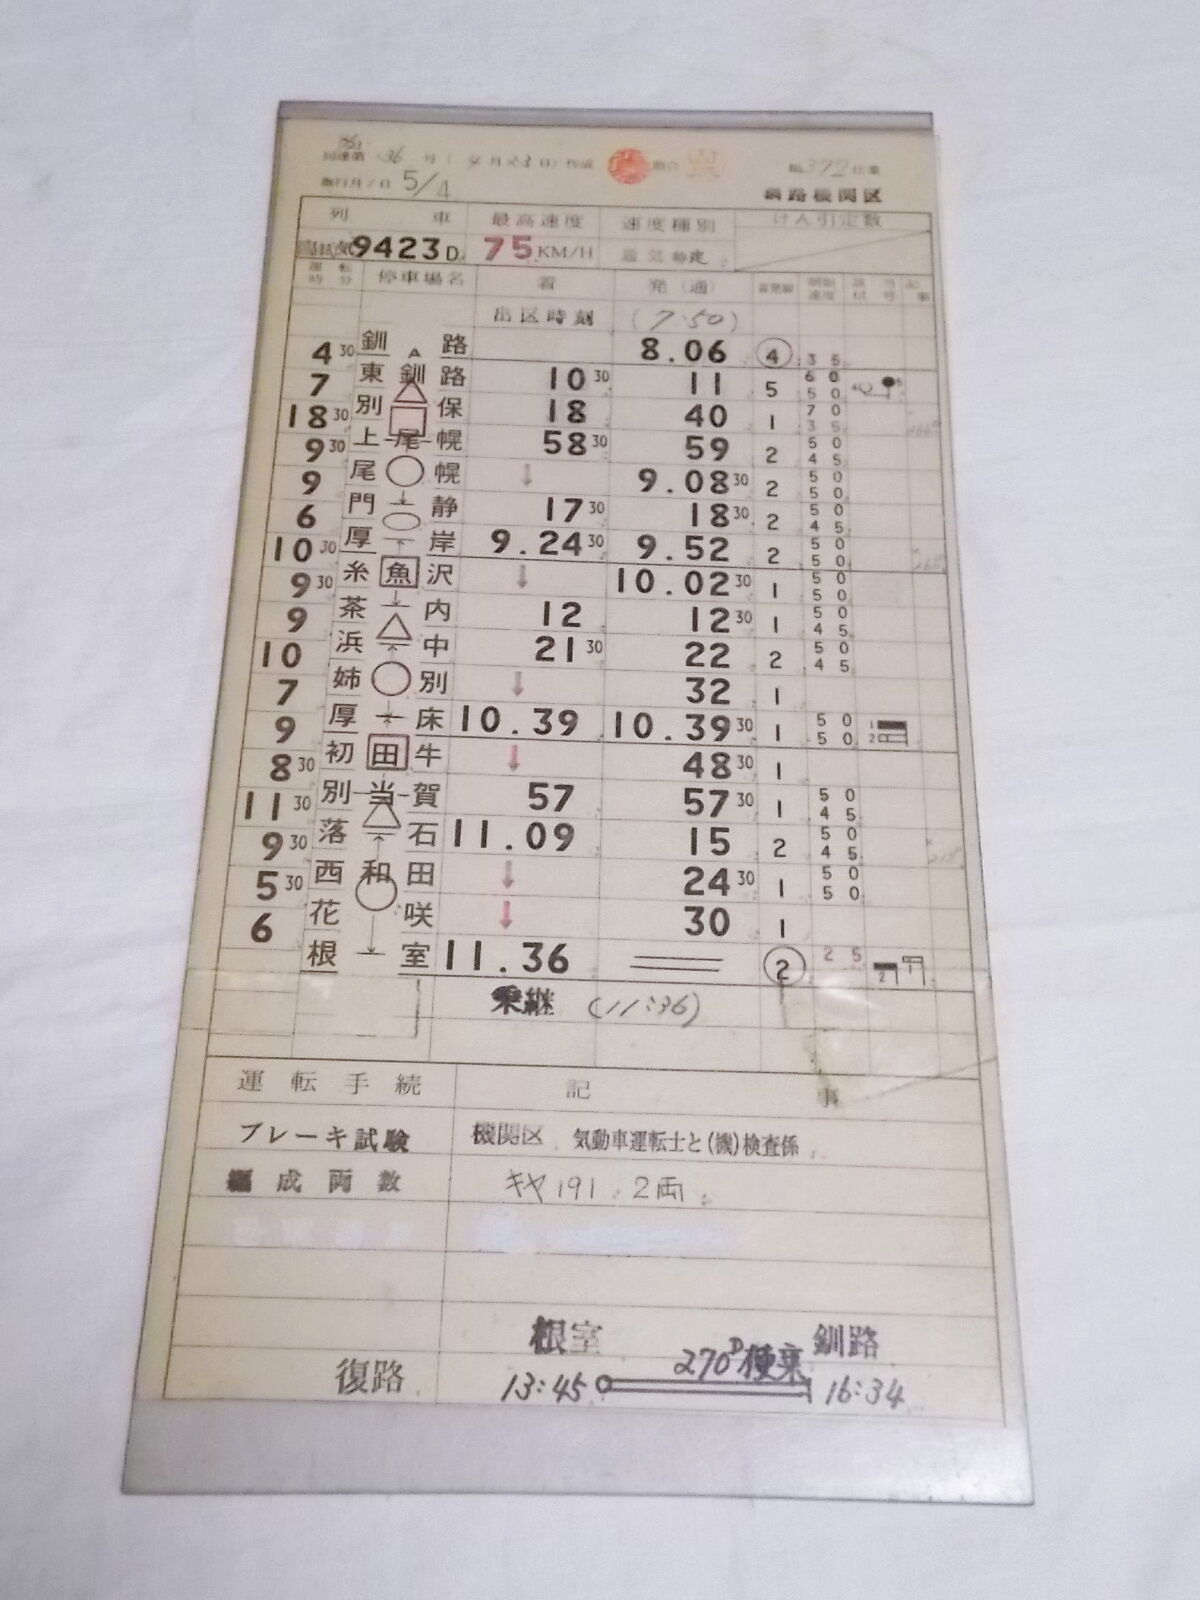 局達第 36 号 ( 4月23日) 作成 照合 組392仕業
施行月/日 5/4 釧路機関区
列 車 最高速度 速度種別 けん引定数
9423D. 75KM/H 通気 特定
運転時分 停車場名 着 発(通) 着発線 制限速度 該当信号 記事
出区時刻 (7:50)
釧 路 8.06 ④ 35
4 30
東釧路 10 30 11 5 60 50
7
別 保 18 40 1 70 35
18 30
上尾幌 58 30 59 2 50 45
9 30
尾 幌 ↓ 9.08 30 2 50 50
9
門 静 17 30 18 30 2 50 45
6
厚 岸 9.24 30 9.52 2 50 50
10 30
糸魚沢 ↓ 10.02 30 1 50 50
9 30
茶 内 12 12 30 1 50 45
9
浜 中 21 30 22 2 50 45
10
姉 別 ↓ 32 1
7
厚 床 10.39 10.39 30 1 50 50 1 2
9
初田牛 ↓ 48 30 1
8 30
別当賀 57 57 30 1 50 45
11 30
落 石 11.09 15 2 50 45
9 30
西和田 ↓ 24 30 1 50 50
5 30
花 咲 ↓ 30 1
6
根 室 11.36 ② 25 2 1
乗継 (11:36)
運転手続 記 事
ブレーキ試験 機関区 気動車運転士と(機)検査係
編成両数 キヤ191 2両
根室 270D便乗 釧路
復路 13:45 16:34